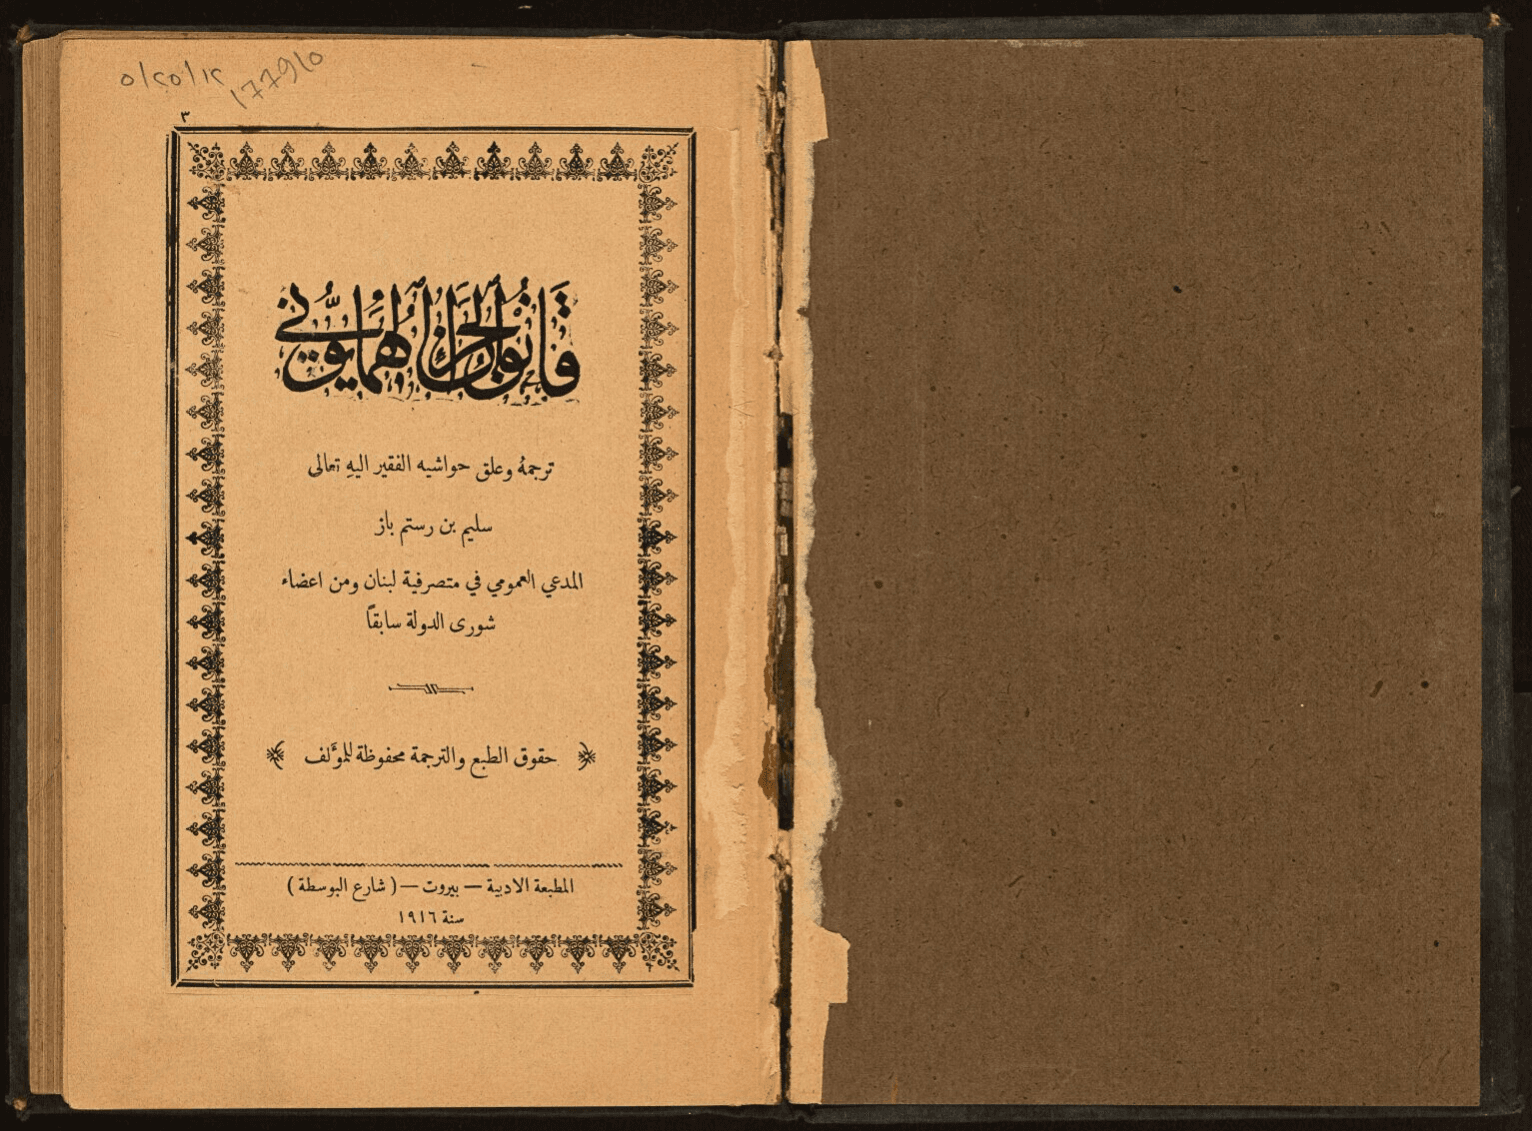 ٣
قانون الجزاء الهمايوني
ترجمهُ وعلق حواشيه الفقير اليهِ تعالى
سليم بن رستم باز
المدعي العمومي في متصرفية لبنان ومن اعضاء
شورى الدولة سابقاً
حقوق الطبع والترجمة محفوظة للمؤَلف
المطبعة الادبية — بيروت — ( شارع البوسطة )
سنة ١٩١٦